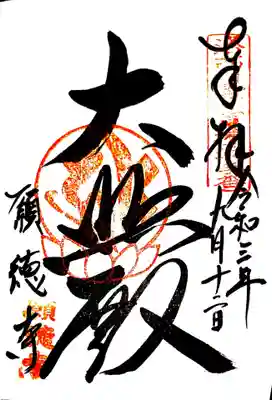 奉拝
令和三年
九月十二日
大悲殿
願徳寺